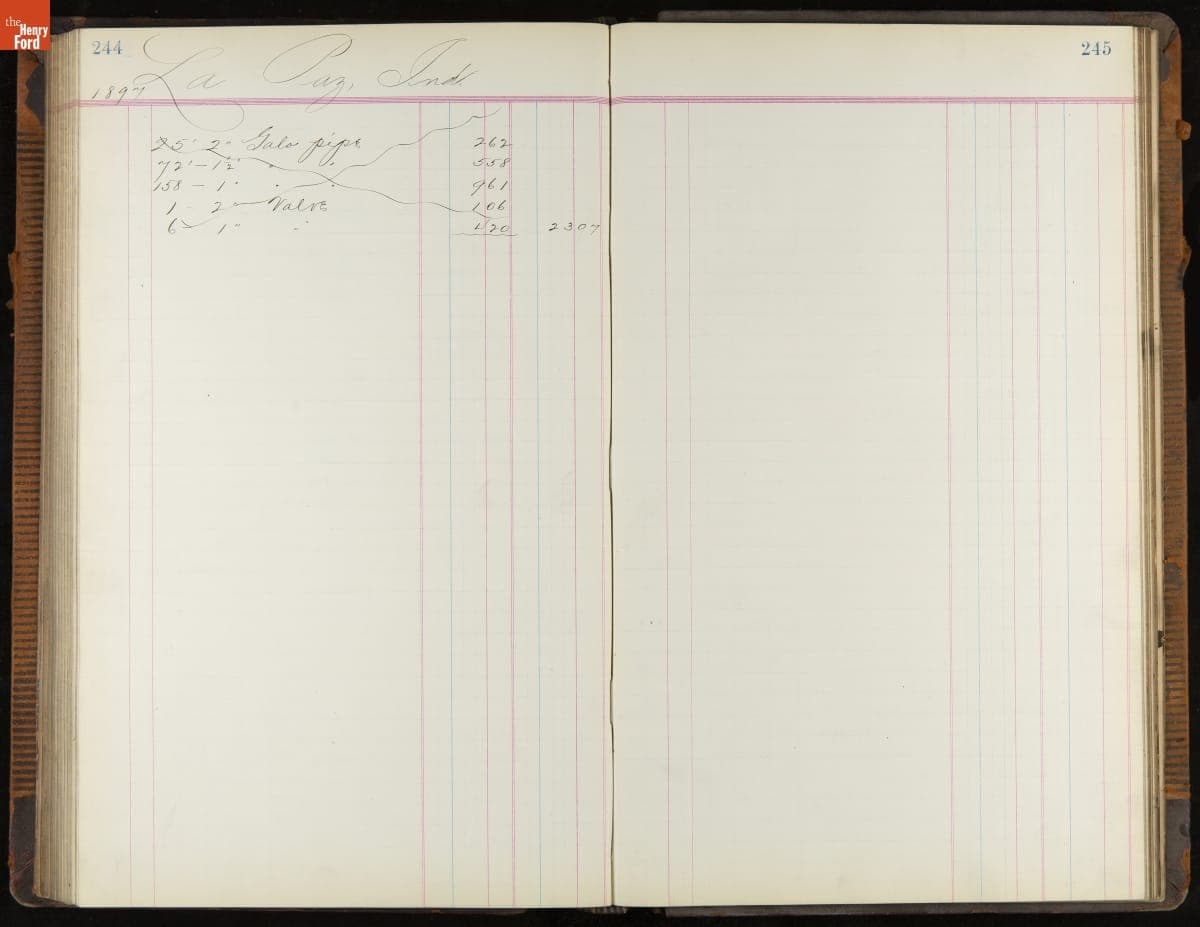 the Henry Ford
244
La Paz, Ind.
1897
25' 2" Galv pipe 262
72' - 1½" " " 558
158 - 1" " " 961
1 - 2" Valve 106
6 - 1" " 420 2307
245